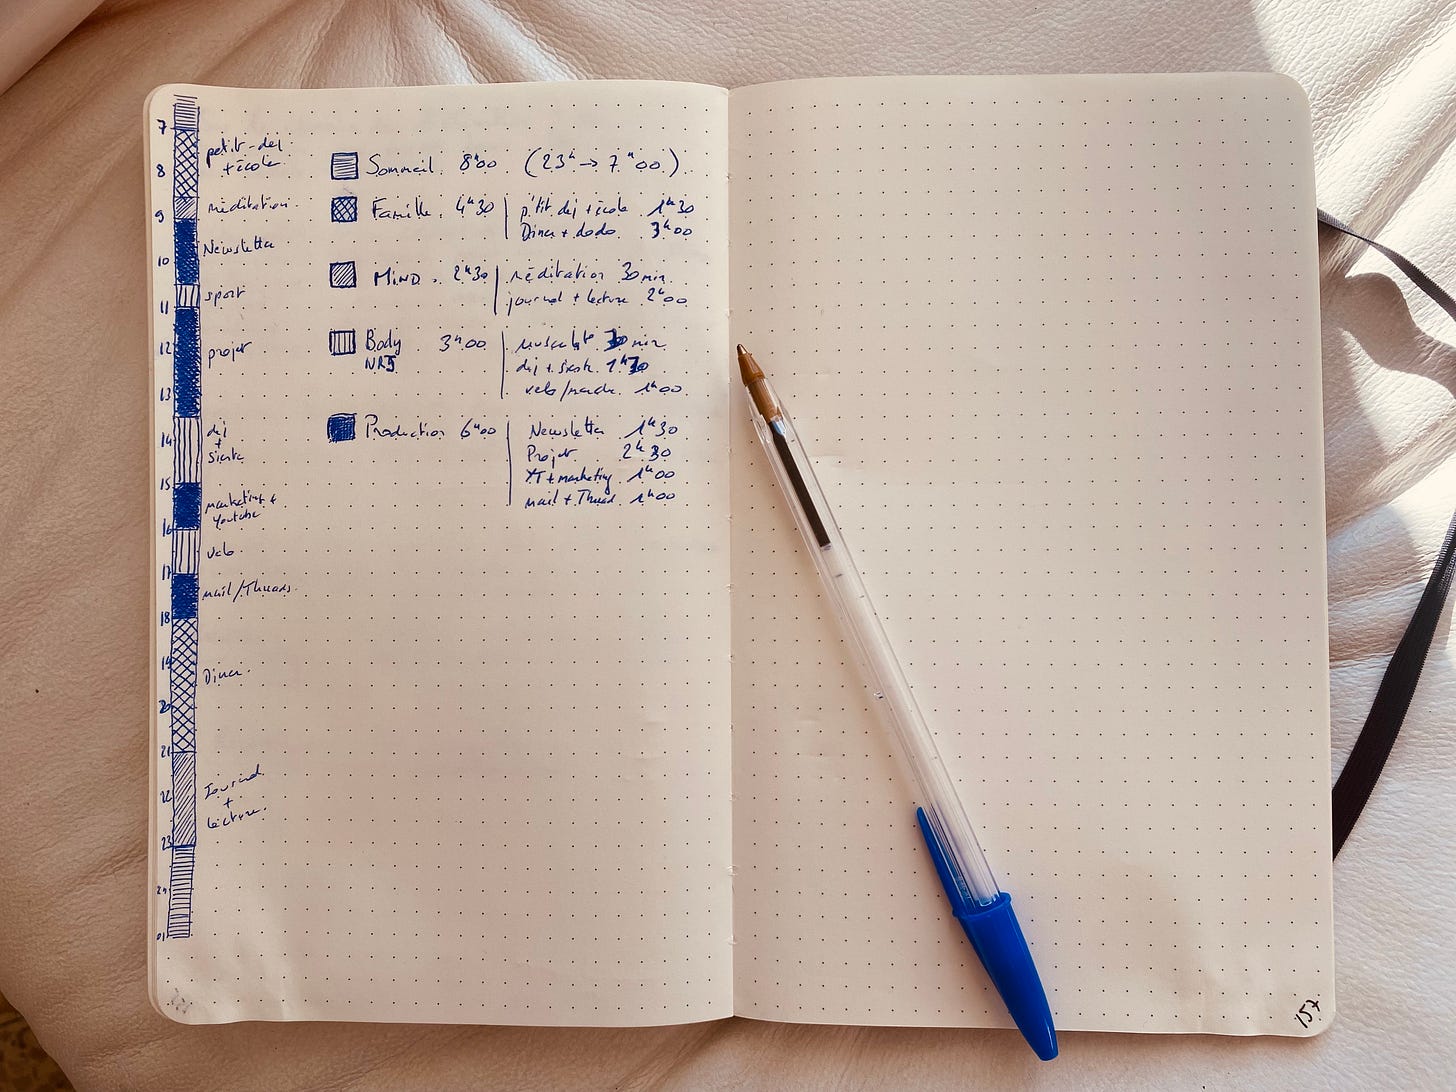 7
petit-dej
+ école
8
méditation
9
Newsletter
10
sport
11
projet
12
13
dej
14
+
sieste
15
marketing +
Youtube
16
velo
17
mail/Threads
18
19
Diner
20
21
Journal
22
+
lecture
23
24
01
Sommeil 8h00 (23h → 7h00)
Famille 4h30
p'tit dej + école 1h30
Diner + dodo 3h00
MIND 2h30
méditation 30 min
journal + lecture 2h00
Body 3h00
NRJ
muscu 30 min
dej + sieste 1h30
velo/marche 1h00
Production 6h00
Newsletter 1h30
Projet 2h30
YT + marketing 1h00
mail + Thread 1h00
157